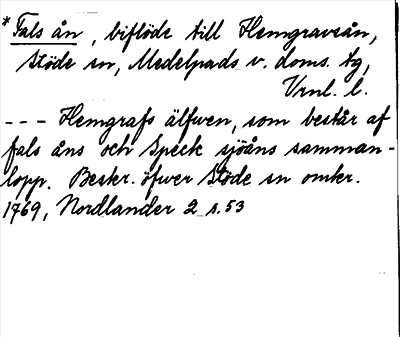 *Fals ån, biflöde till Hemgraveån,
Stöde sn, Medelpads v. doms. tg,
Vrnl. l.
--- Hemgrafs älfwen, som består af
fals åns och Speck sjöåns samman-
lopp. Beskr. öfwer Stöde sn omkr.
1769, Nordlander 2 s. 53